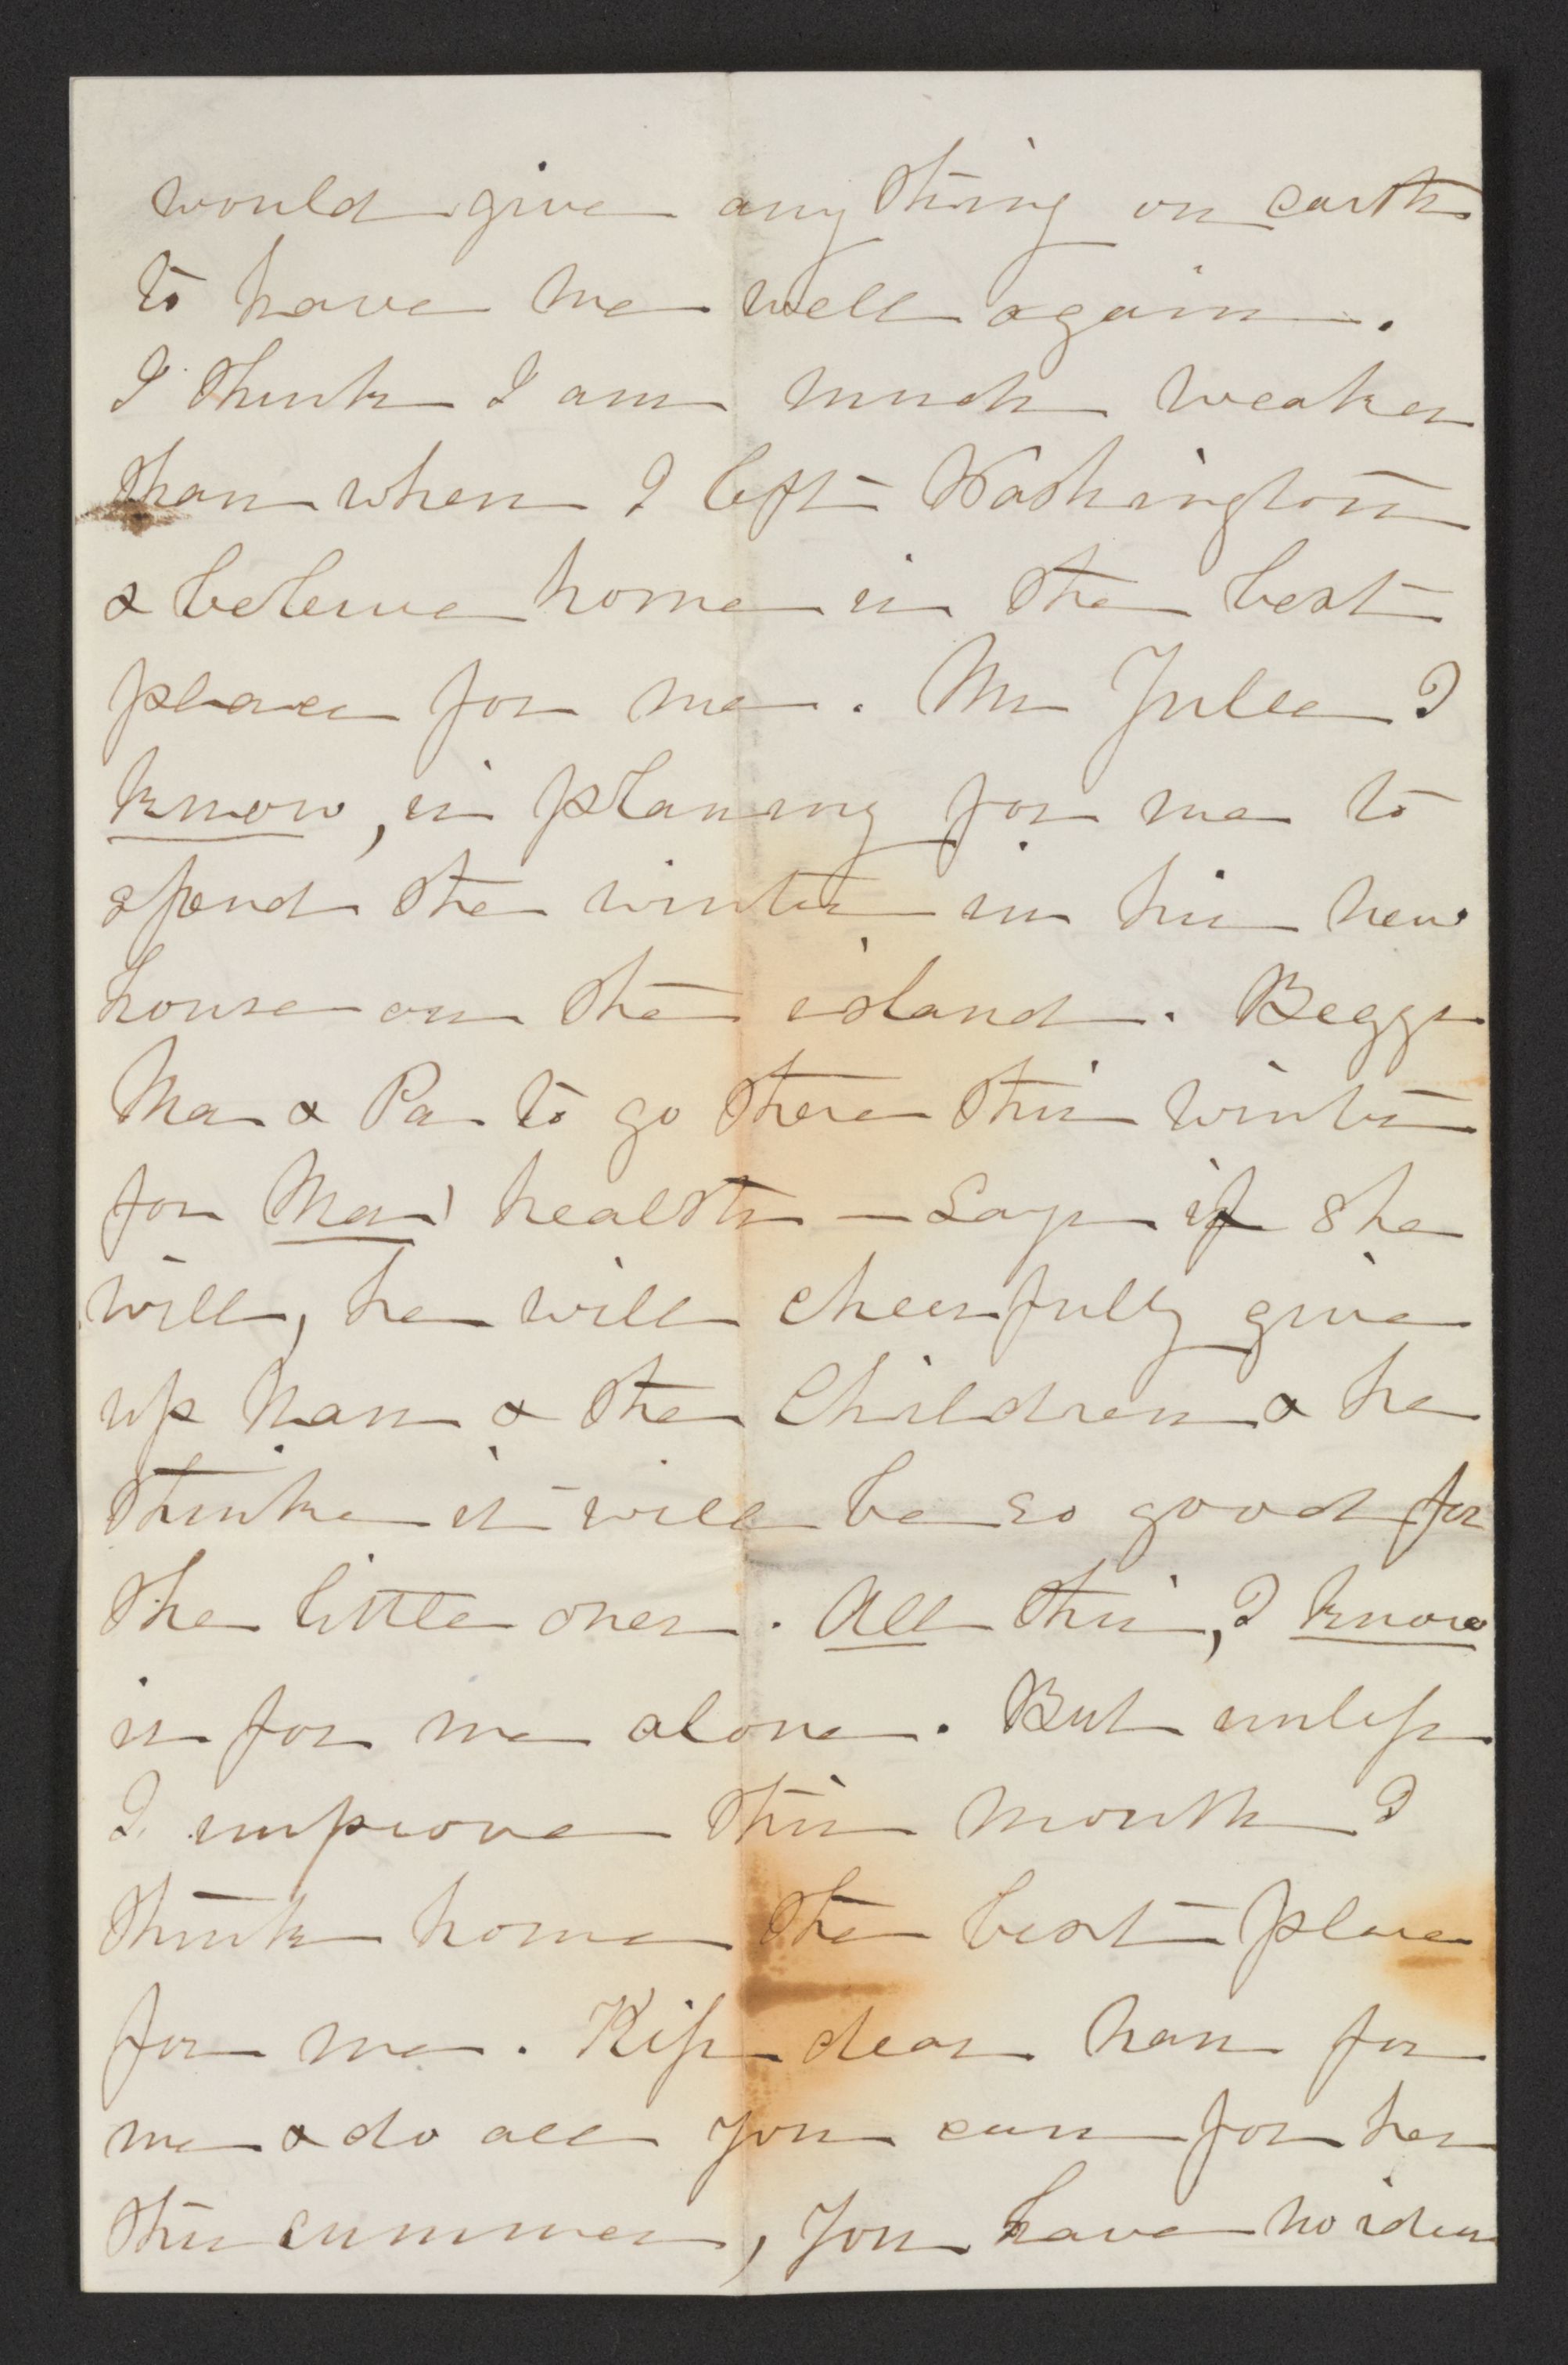 would give any thing on earth
to have me well again.
I think I am much weaker
than when I left Washington
& beleive home is the best
place for me. Mr Julee I
know, is planing for me to
spend the winter in his new
house on the island. Beggs
Ma & Pa to go there this winter
for Mas' health — Says if she
will, he will cheerfully give
up Nan & the Children & he
thinks it will be so good for
the little ones. All this, I know
is for me alone. But unless
I improve this month I
think home the best place
for me. Kiss dear Nan for
me & do all you can for her
this summer, you have no idea